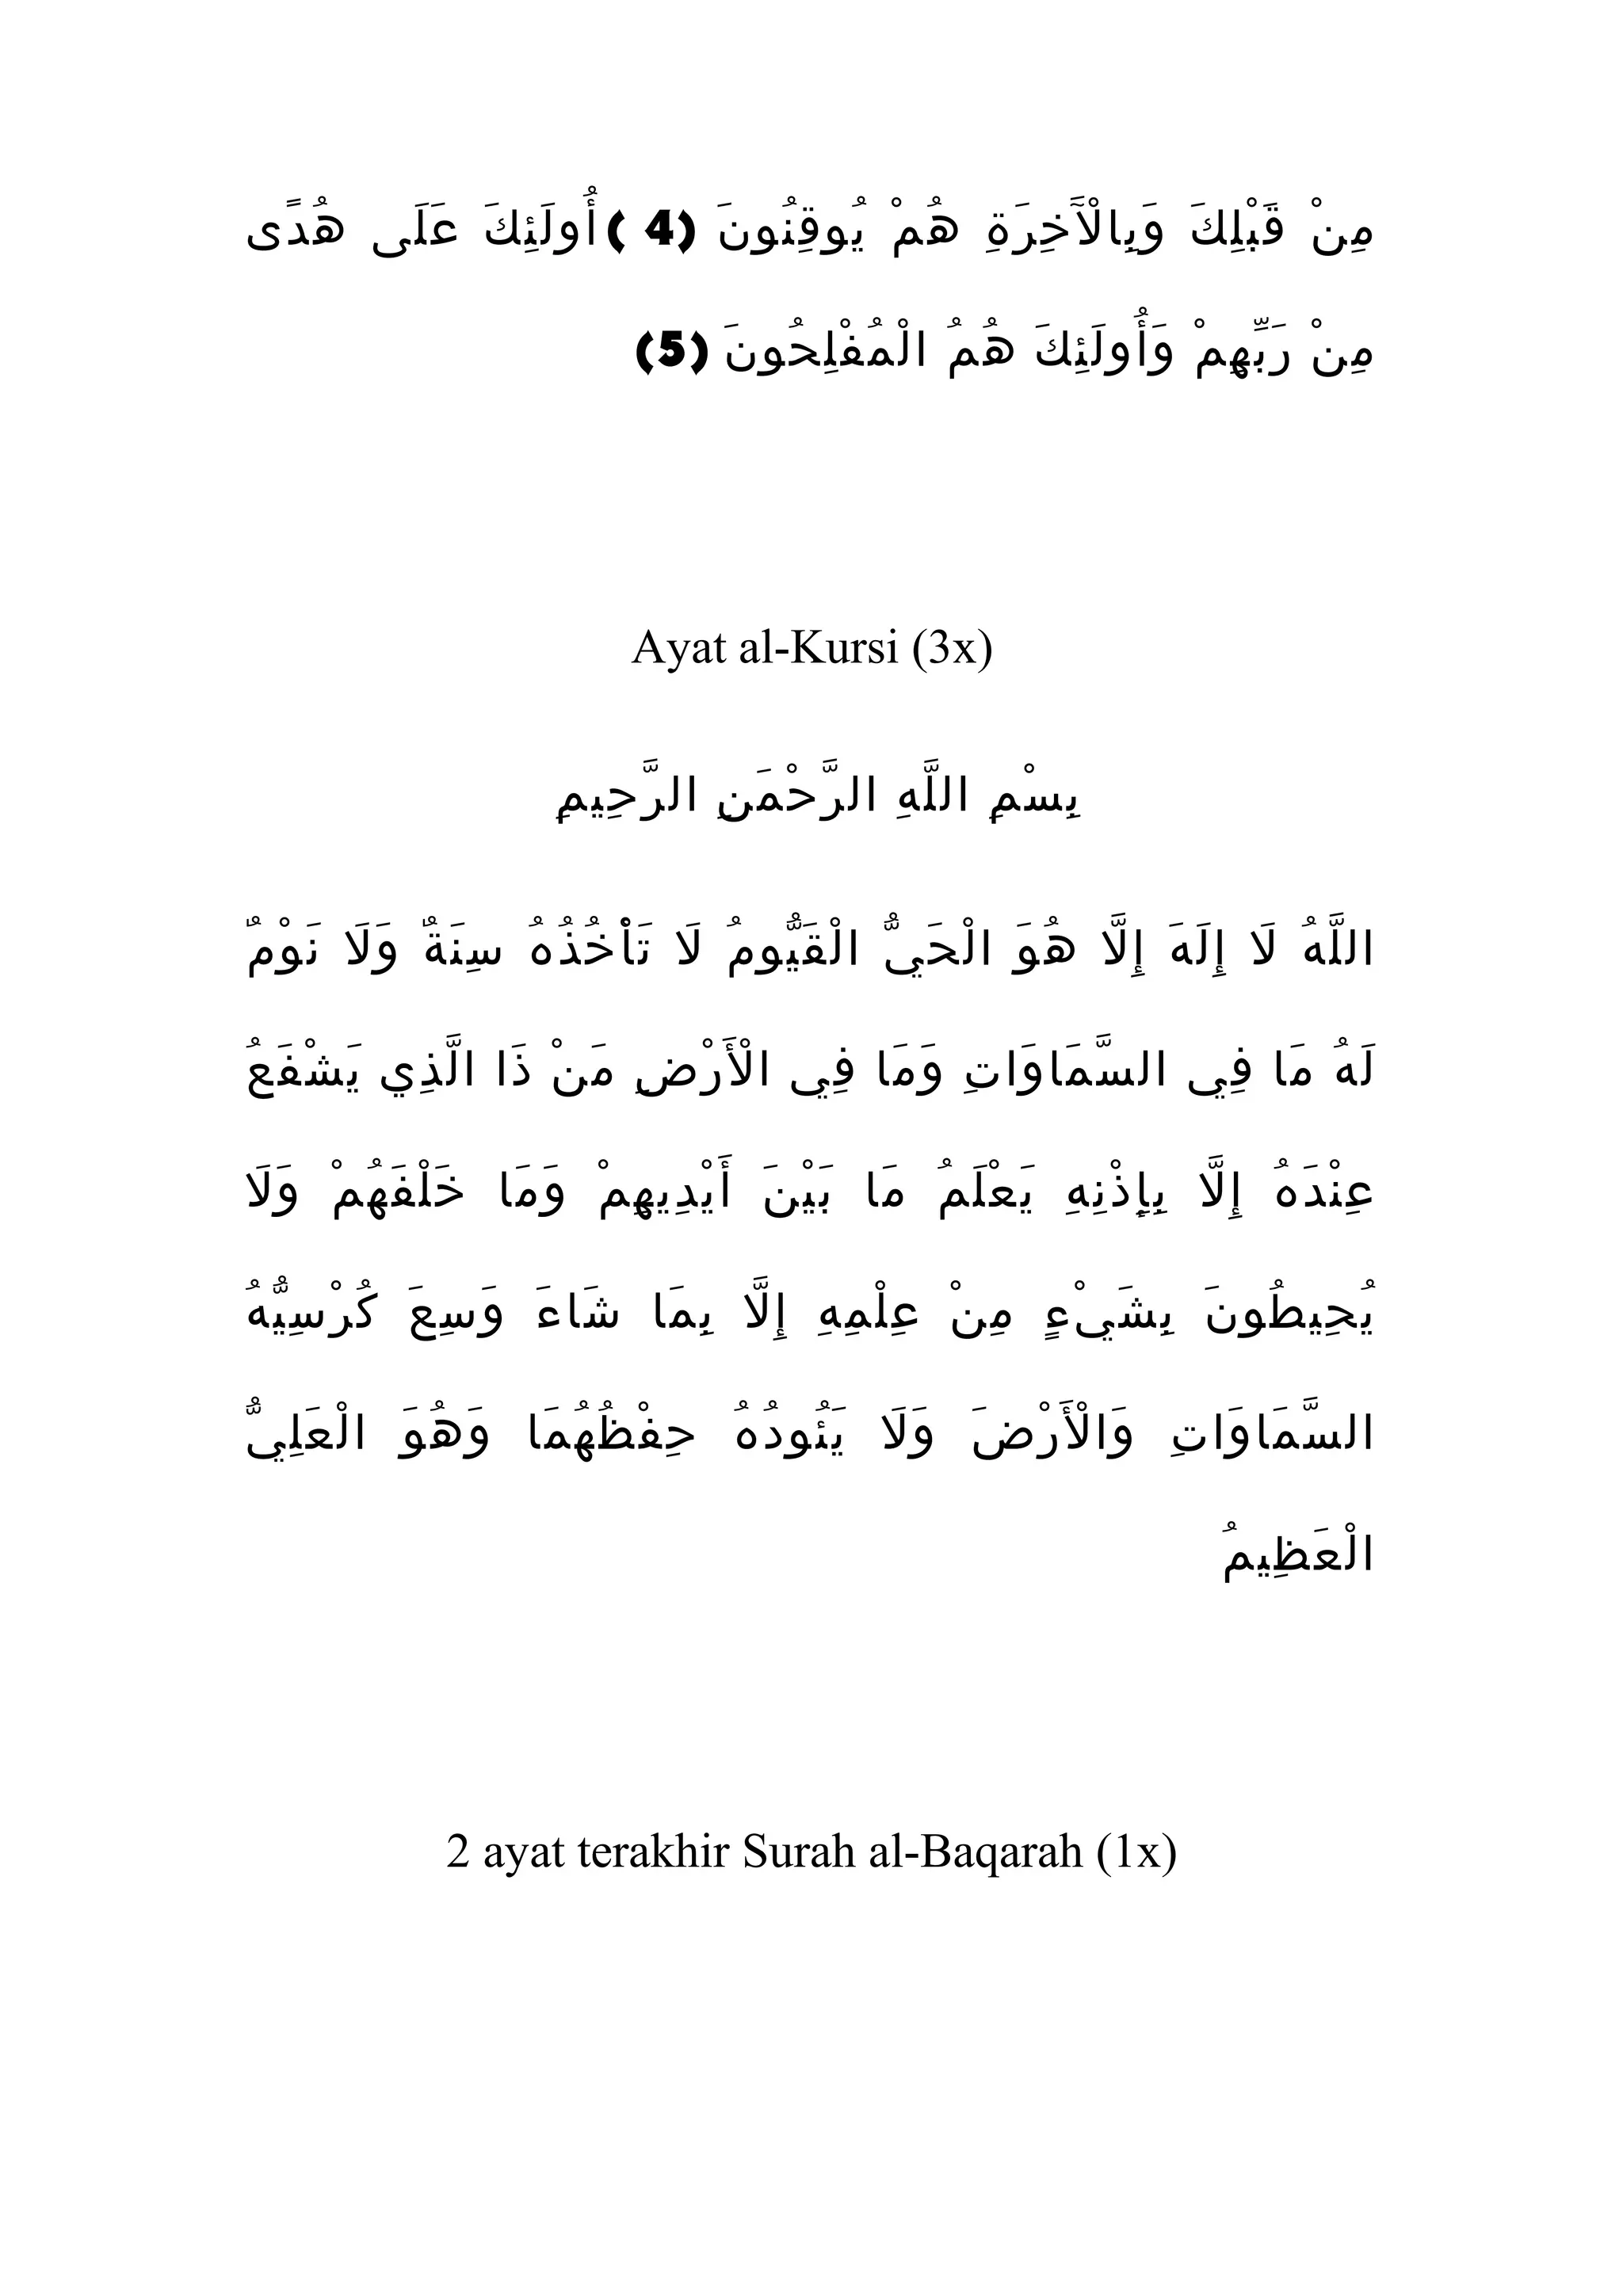 مِنْ قَبْلِكَ وَبِالْآَخِرَةِ هُمْ يُوقِنُونَ (4) أُولَئِكَ عَلَى هُدًى
مِنْ رَبِّهِمْ وَأُولَئِكَ هُمُ الْمُفْلِحُونَ (5)
Ayat al-Kursi (3x)
بِسْمِ اللَّهِ الرَّحْمَنِ الرَّحِيمِ
اللَّهُ لَا إِلَهَ إِلَّا هُوَ الْحَيُّ الْقَيُّومُ لَا تَأْخُذُهُ سِنَةٌ وَلَا نَوْمٌ
لَهُ مَا فِي السَّمَاوَاتِ وَمَا فِي الْأَرْضِ مَنْ ذَا الَّذِي يَشْفَعُ
عِنْدَهُ إِلَّا بِإِذْنِهِ يَعْلَمُ مَا بَيْنَ أَيْدِيهِمْ وَمَا خَلْفَهُمْ وَلَا
يُحِيطُونَ بِشَيْءٍ مِنْ عِلْمِهِ إِلَّا بِمَا شَاءَ وَسِعَ كُرْسِيُّهُ
السَّمَاوَاتِ وَالْأَرْضَ وَلَا يَئُودُهُ حِفْظُهُمَا وَهُوَ الْعَلِيُّ
الْعَظِيمُ
2 ayat terakhir Surah al-Baqarah (1x)